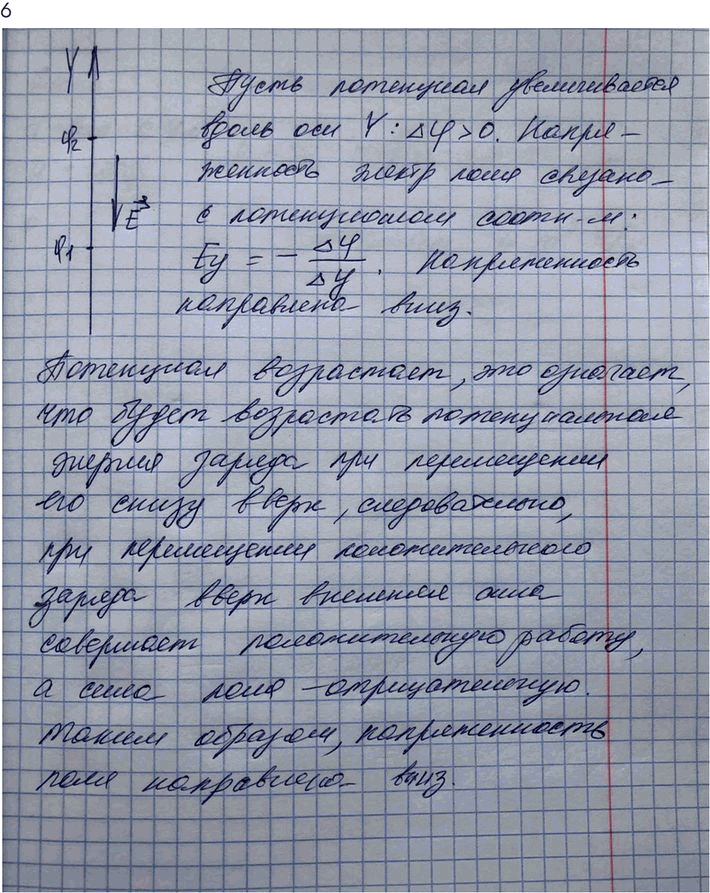 6
Y
φ2
E
φ1
Пусть потенциал увеличивается
вдоль оси Y : Δφ > 0. Напря-
женность электр поля связана
с потенциалом соотн-м:
Ey = - Δφ/Δy. Напряженность
направлена вниз.
Потенциал возрастает, это означает,
что будет возрастать потенциальная
энергия заряда при перемещении
его снизу вверх, следовательно,
при перемещении положительного
заряда вверх внешняя сила
совершает положительную работу,
а сила поля – отрицательную.
Таким образом, напряженность
поля направлена вниз.